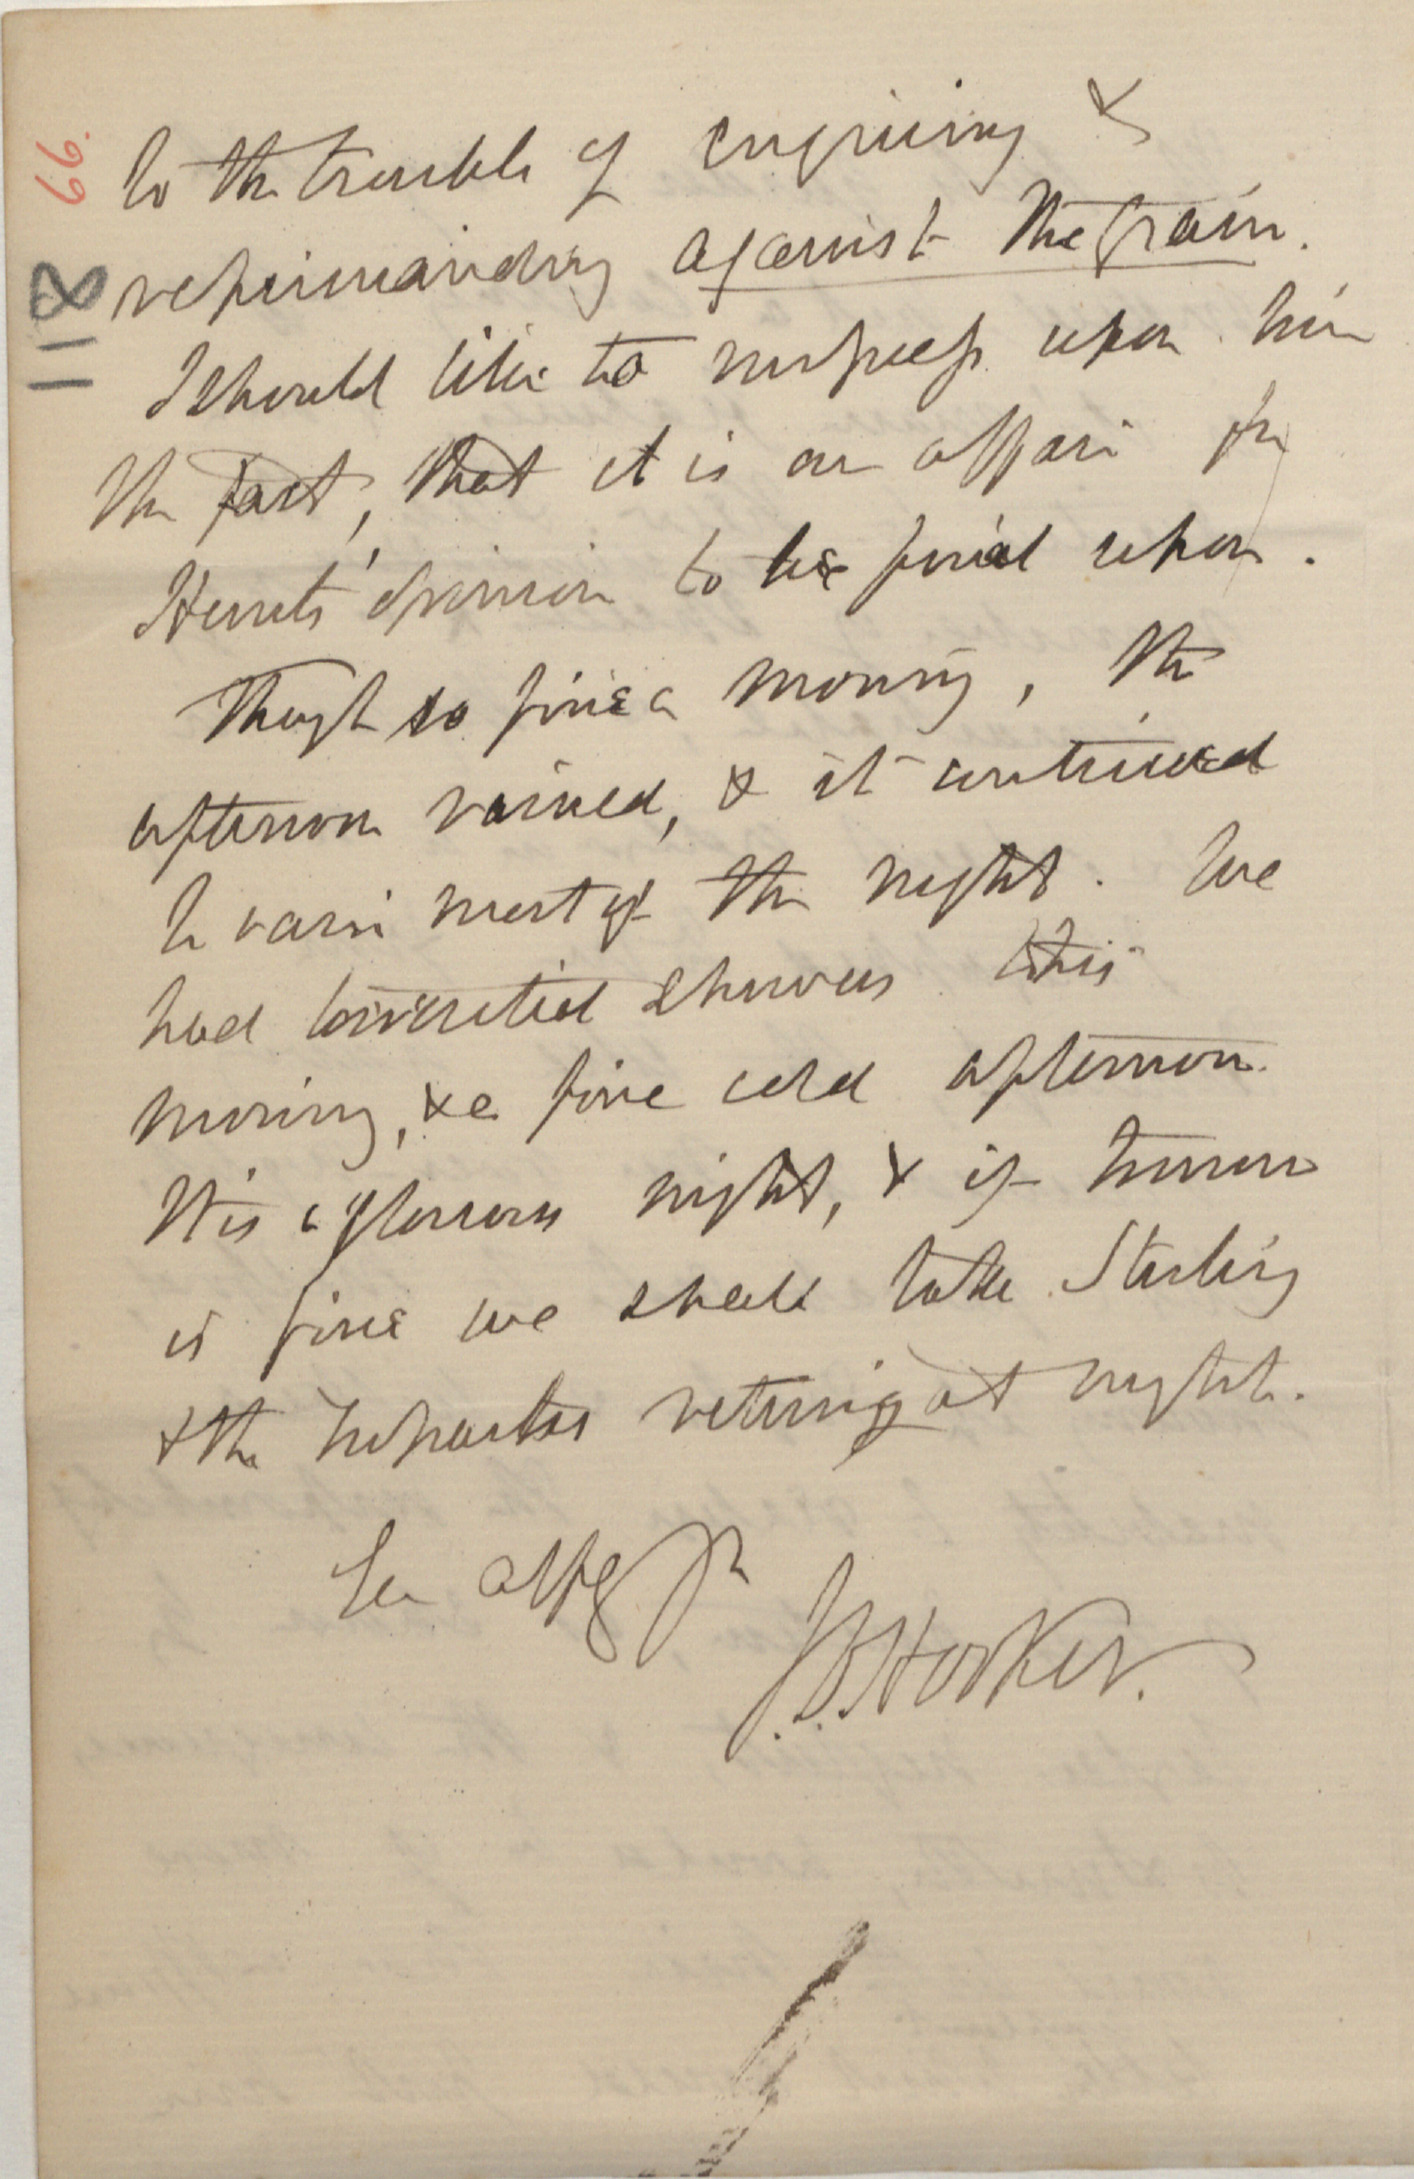 66.
118
to the trouble of enquiring &
reprimanding against the grain.
I should like to impress upon him
the fact, that it is an affair for
Hewett's opinion to be final upon.
Though so fine a morning, the
afternoon rained, & it continued
to rain most of the night. We
had torrential showers this
morning, & a fine cold afternoon.
It is a glorious night, & if tomorrow
is fine we shall take Stirling
& the Trossachs returning at night.
Jos. D. Hooker.